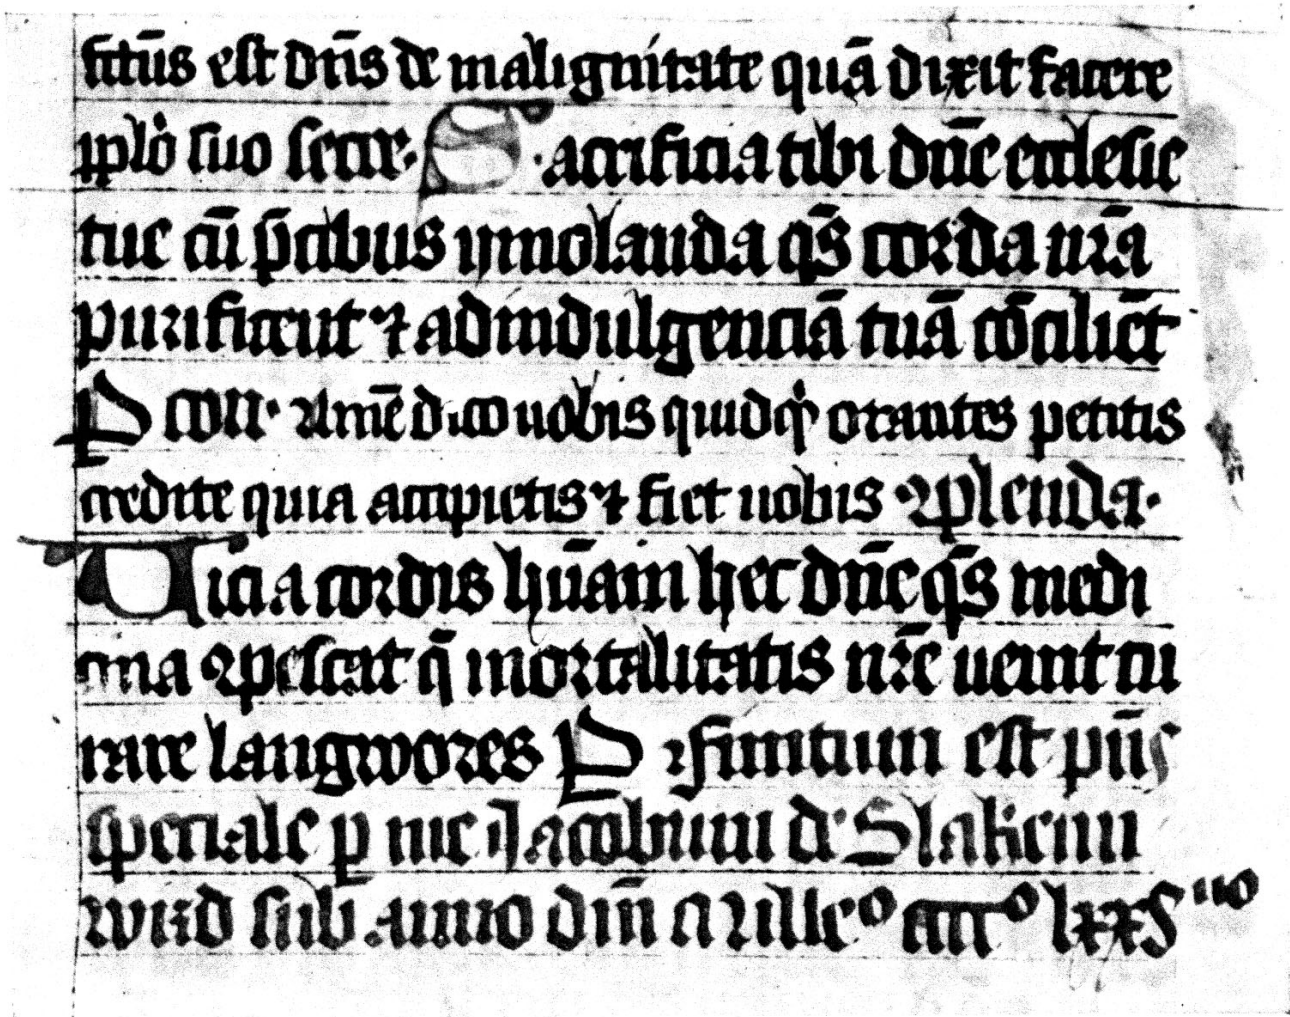 citūs est dn̄s de malignitate quā dixit facere
ip̄lo suo secrᷓ. Sacrificia tibi dn̄e ecclesie
tue cū p̄cibus ymolanda qs̄ corda nr̄a
purificent ⁊ ad indulgenciā tuā cōciliēt
P con. Amē dico uobis quidqͥ orantes petitis
credite quia accipietis ⁊ fiet uobis ꝯplenda.
Uicia cordis hūani hec dn̄e qs̄ medi
cina ꝯpescat q̄ mortalitatis nr̄e uenit cu
rare langwores P ꝛfinitum est pn̄s
speciale ꝑ me Jacobum de Slaken
wird sub anno dn̄i Milleº CCCº lxxSⁱⁱº